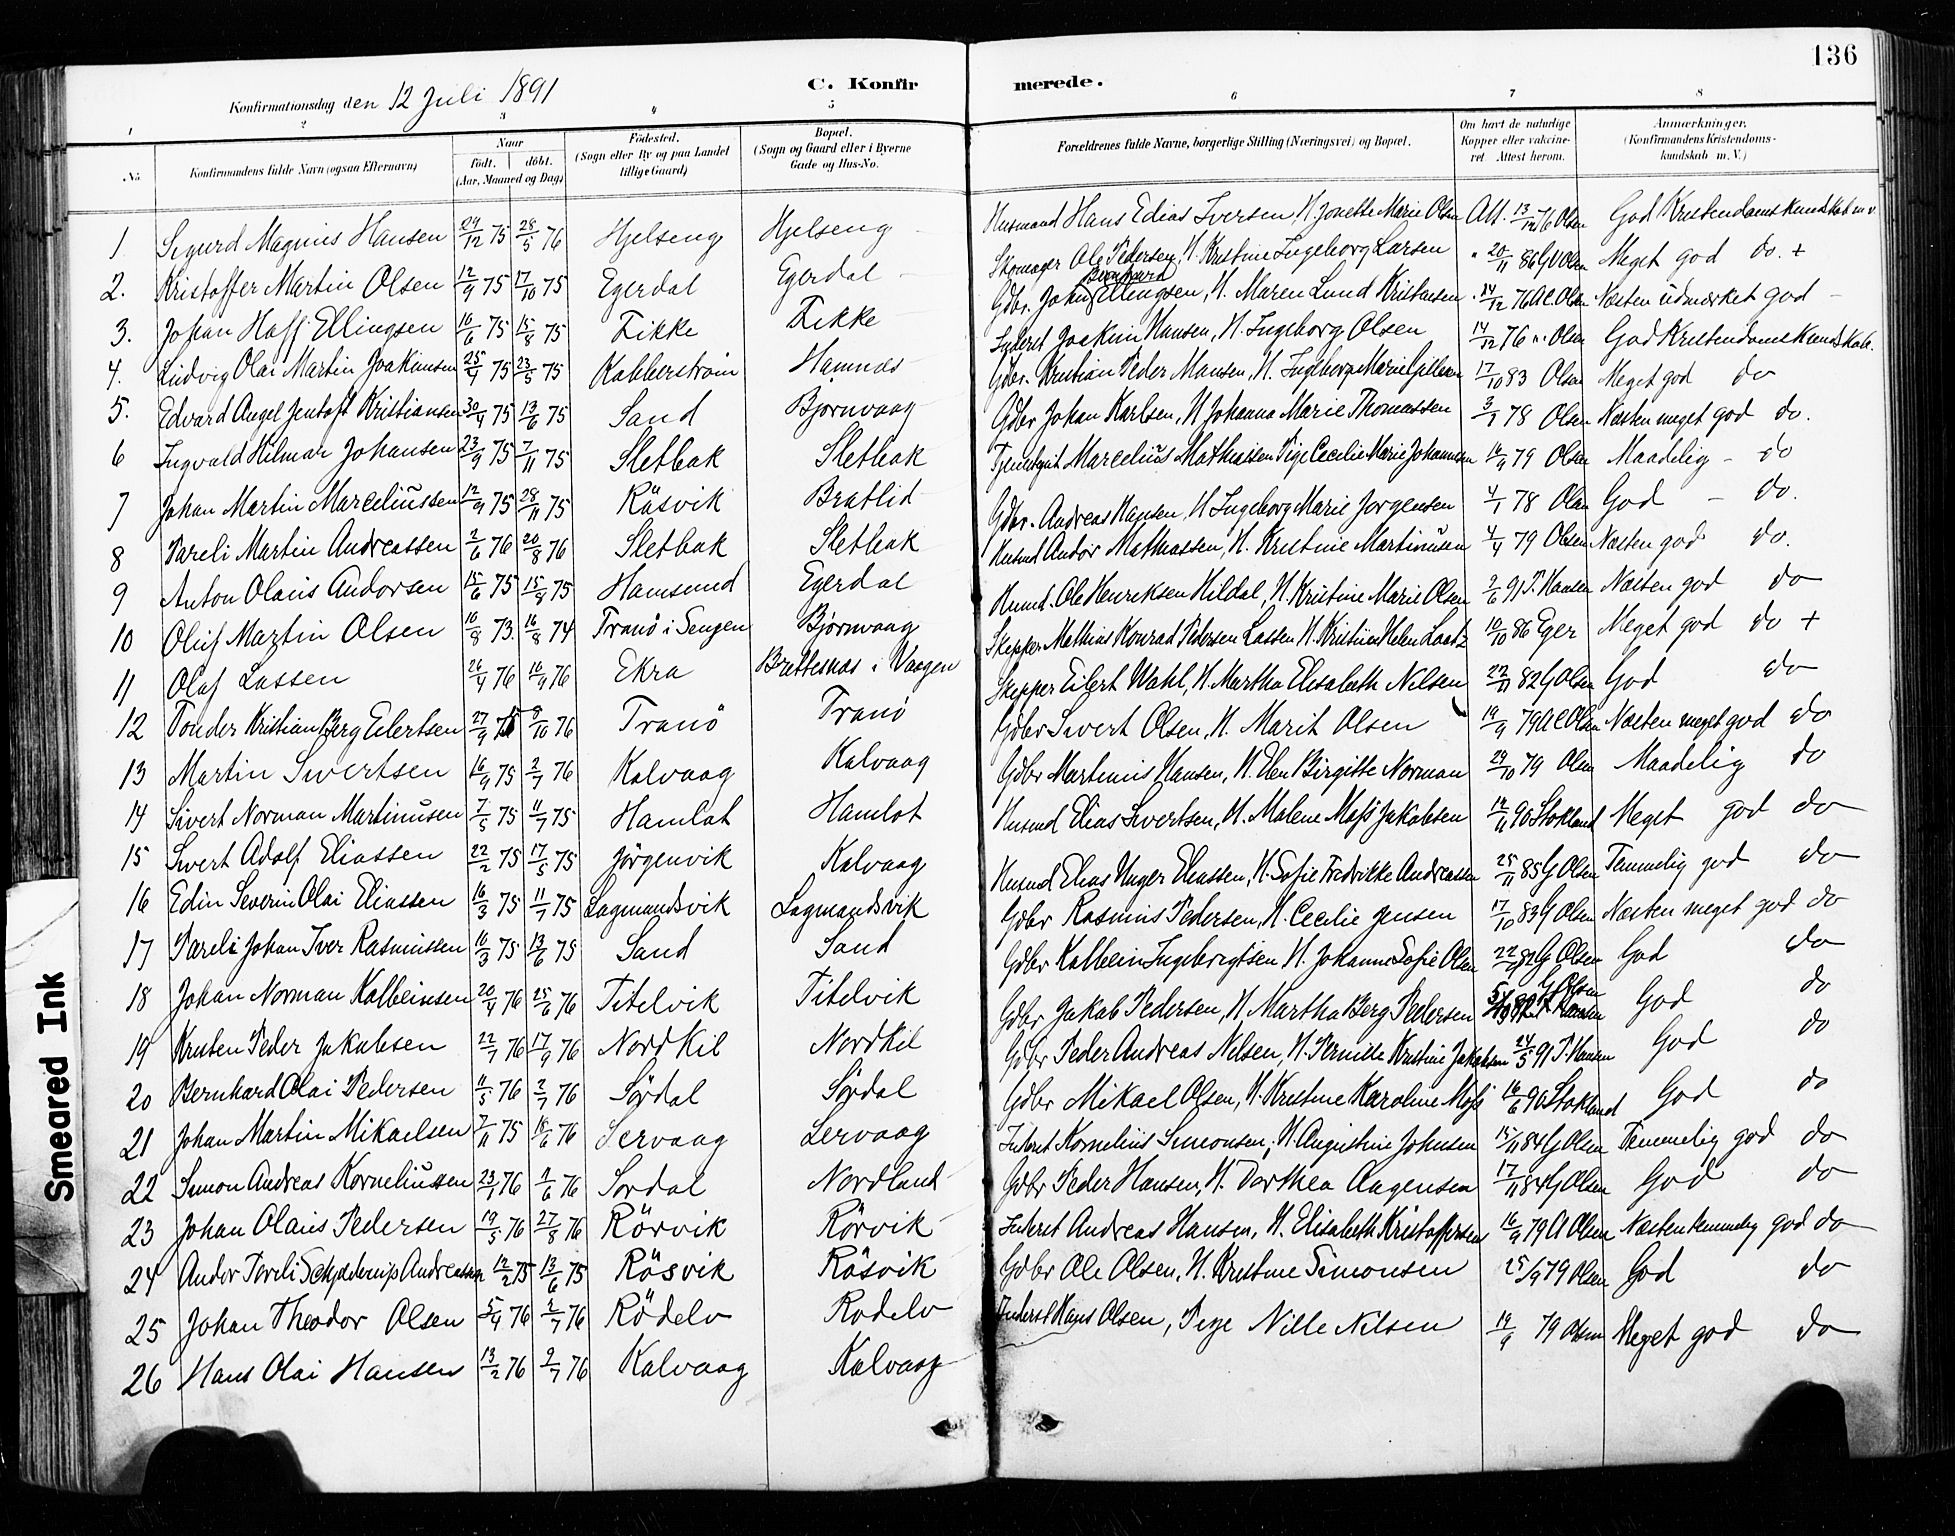 136
Konfirmationsdag den 12 Juli 1891
C. Konfirmerede.
1 2 3 4 5 6 7 8
No Konfirmandens fulde Navn (ogsaa Efternavn) Naar født. døbt. (Aar, Maaned og Dag) Fødested. (Sogn eller By og paa Landet tillige Gaard) Bopæl. (Sogn og Gaard eller i Byerne Gade og Hus-No. Forældrenes fulde Navne, borgerlige Stilling (Næringsvei) og Bopæl. Om havt de naturlige Kopper eller vakcineret Attest herom. Anmærkninger. (Konfirmandens Kristendomskundskab m. V.)
1 Sigurd Magnus Hansen 24/12 75 28/5 76 Hjelseng Hjelseng Husmand Hans Edias Iversen, H. Jonette Marie Olsen Att. 13/12 76 Olsen God Kristendomskundskab m.v.
2. Kristoffer Martin Olsen 12/9 75 17/10 75 Egerdal Egerdal Skomager Ole Pedersen, H. Kristine Ingeborg Larsen " 20/11 86 G Olsen Meget god do. +
3. Johan Hoff Ellingsen 16/6 75 15/8 75 Fikke Fikke Gdbr. Johan Bernhard Ellingsen, H. Maren Lund Kristensen " 14/12 76 A C Olsen Næsten udmærket god
4. Ludvig Olai Martin Joakimsen 25/4 75 23/5 75 Kobberstrøm Hamnes Inderst Joakim Hansen, H. Ingeborg Olsen 14/12 76 " Olsen God Kristendomskundskab.
5. Edvard Angel Jentoft Kristiansen 30/4 75 13/6 75 Sand Bjørnvaag Gdbr. Kristian Peder Hansen, H. Ingeborg Marie 17/10 83 Olsen Meget god do
6 Ingvald Hilmar Johansen 23/9 75 7/11 75 Sletbak Sletbak Gdbr Johan Karlsen, H Johanna Marie Thomassen 3/7 78 Olsen Næsten meget god do.
7 Johan Martin Marceliussen 12/9 75 28/11 75 Røsvik Bratlid Marcelius Mathiassen Pige Cecilie Marie Johannsen 16/9 79 Olsen Maadelig - do
8 Pareli Martin Andreassen 2/6 76 20/8 76 Sletbak Sletbak Gdbr. Andreas Hansen, H Ingeborg Marie Jorgensen 4/1 78 Olsen God - do.
9 Anton Olaus Andorsen 15/6 75 15/8 75 Hamsund Egerdal Husmd Andor Mathiassen, H. Kristine Martinusen 4/4 79 Olsen Næsten god do.
10 Oluf Martin Olsen 10/8 73. 16/8 74 Tranø i Senjen Bjørnvaag Husmd. Ole Henriksen Hildal, H. Kristine Marie Olsen 2/6 91 P. Hansen Næsten god do
11 Olaf Lassen 26/4 76 10/9 76 Ekra Brettesnæs i Vaagen Skipper Mathias Konrad Pedersen Lassen H. Kristine Helen Laatz 10/10 86 Eger Meget god do +
12 Tonder Kristian Berg Eilertsen 27/9 75 8/10 76 Tranø Tranø Skipper Eilert Wahl, H. Martha Elisabeth Nilsen 22/11 82 G Olsen God do
13 Martin Sivertsen 16/9 75 2/7 76 Kalvaag Kalvaag Gdbr Sivert Olsen, H. Marit Olsen 19/9 79 A C Olsen Næsten meget god do
14 Sivert Norman Martinusen 7/5 75 11/7 75 Hamlot Hamlot Gdbr Martinus Hansen, H. Elen Birgitte Norman 29/10 79 Olsen Maadelig do
15 Sivert Adolf Eliassen 22/2 75 17/5 75 Jørgenvik Kalvaag Husmd Elias Sivertsen, H. Malene Moss Jakobsen 14/11 90 Stokland Meget god do
16 Edin Severin Olai Eliassen 16/3 75 11/7 75 Lagmandsvik Lagmandsvik Husmd Elias Unger Eliassen, H. Sofie Fredrikke Andreassen 25/11 85 G Olsen Temmelig god do
17 Pareli Johan Iver Rasmussen 10/3 75 13/6 75 Sand Sand Gdbr Rasmus Pedersen, H. Cecilie Jensen 17/10 83 G Olsen Næsten meget god do
18 Johan Norman Kolbeinsen 20/4 76 25/6 76 Titelvik Titelvik Gdbr Kolbein Ingebrigtsen H. Johanne Sofie Olsen G Olsen God do
19 Kristen Peder Jakobsen 22/7 76 17/9 76 NordKil NordKil Gdbr Jakob Pedersen, H Martha Berg Pedersen G Olsen God do
20 Bernhard Olai Pedersen 11/5 76 2/7 76 Sørdal Sørdal Gdbr Peder Andreas Nilsen, H. Pernille Kristine Jakobsen 24/5 91 P. Hansen God do
21 Johan Martin Mikaelsen 7/11 75 18/6 76 Lervaag Lervaag Gdbr Mikael Olsen, H. Kristine Karoline Moss 16/6 90 Stokland God do
22 Simon Andreas Korneliussen 23/1 76 2/6 76 Sørdal Nordland Inderst Kornelius Simonsen, H. Augustine Johnsen 15/11 84 G Olsen Temmelig god do
23 Johan Olaus Pedersen 19/5 76 27/8 76 Rörvik Rörvik Gdbr Peder Hansen, H. Dorthea Aagensen 17/11 84 G Olsen God do
24 Andor Pareli Schjelderup Andreassen 12/2 75 13/6 75 Rösvik Røsvik Inderst Andreas Hansen, H. Elisabeth Kristoffersen 16/9 79 A Olsen Næsten temmelig god do
25 Johan Theodor Olsen 5/4 76 2/7 76 Rödelv Rødelv Gdbr Ole Olsen, H. Kristine Simonsen 25/9 79 Olsen God do
26 Hans Olai Hansen 13/2 76 2/7 76 Kalvaag Kalvaag Inderst Hans Olsen, Pige Nille Nilsen 19/9 79 Olsen Meget god do
Smeared Ink